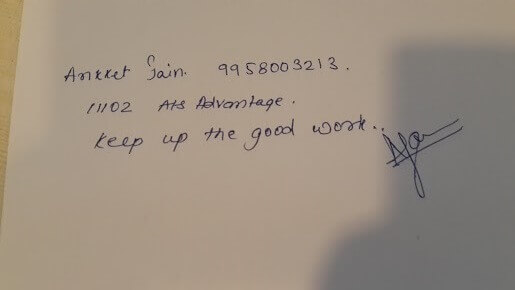 Ankket Jain. 9958003213.
11102 Ats Advantage.
Keep up the good work..